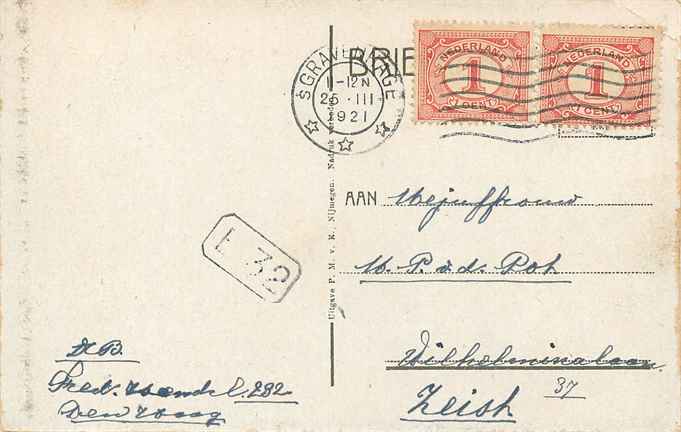 BRIE
'SGRAVENHAGE
1-12N
25.III
1921
NEDERLAND
1
1 CENT
NEDERLAND
1
1 CENT
Uitgave F. M. v. K., Nijmegen. Nadruk verboden
AAN Mejuffrouw
M. P. v. d. Pot
Wilhelminalaan
37
Zeist
L 32
Fred. Hendr. L. 282
Den Haag